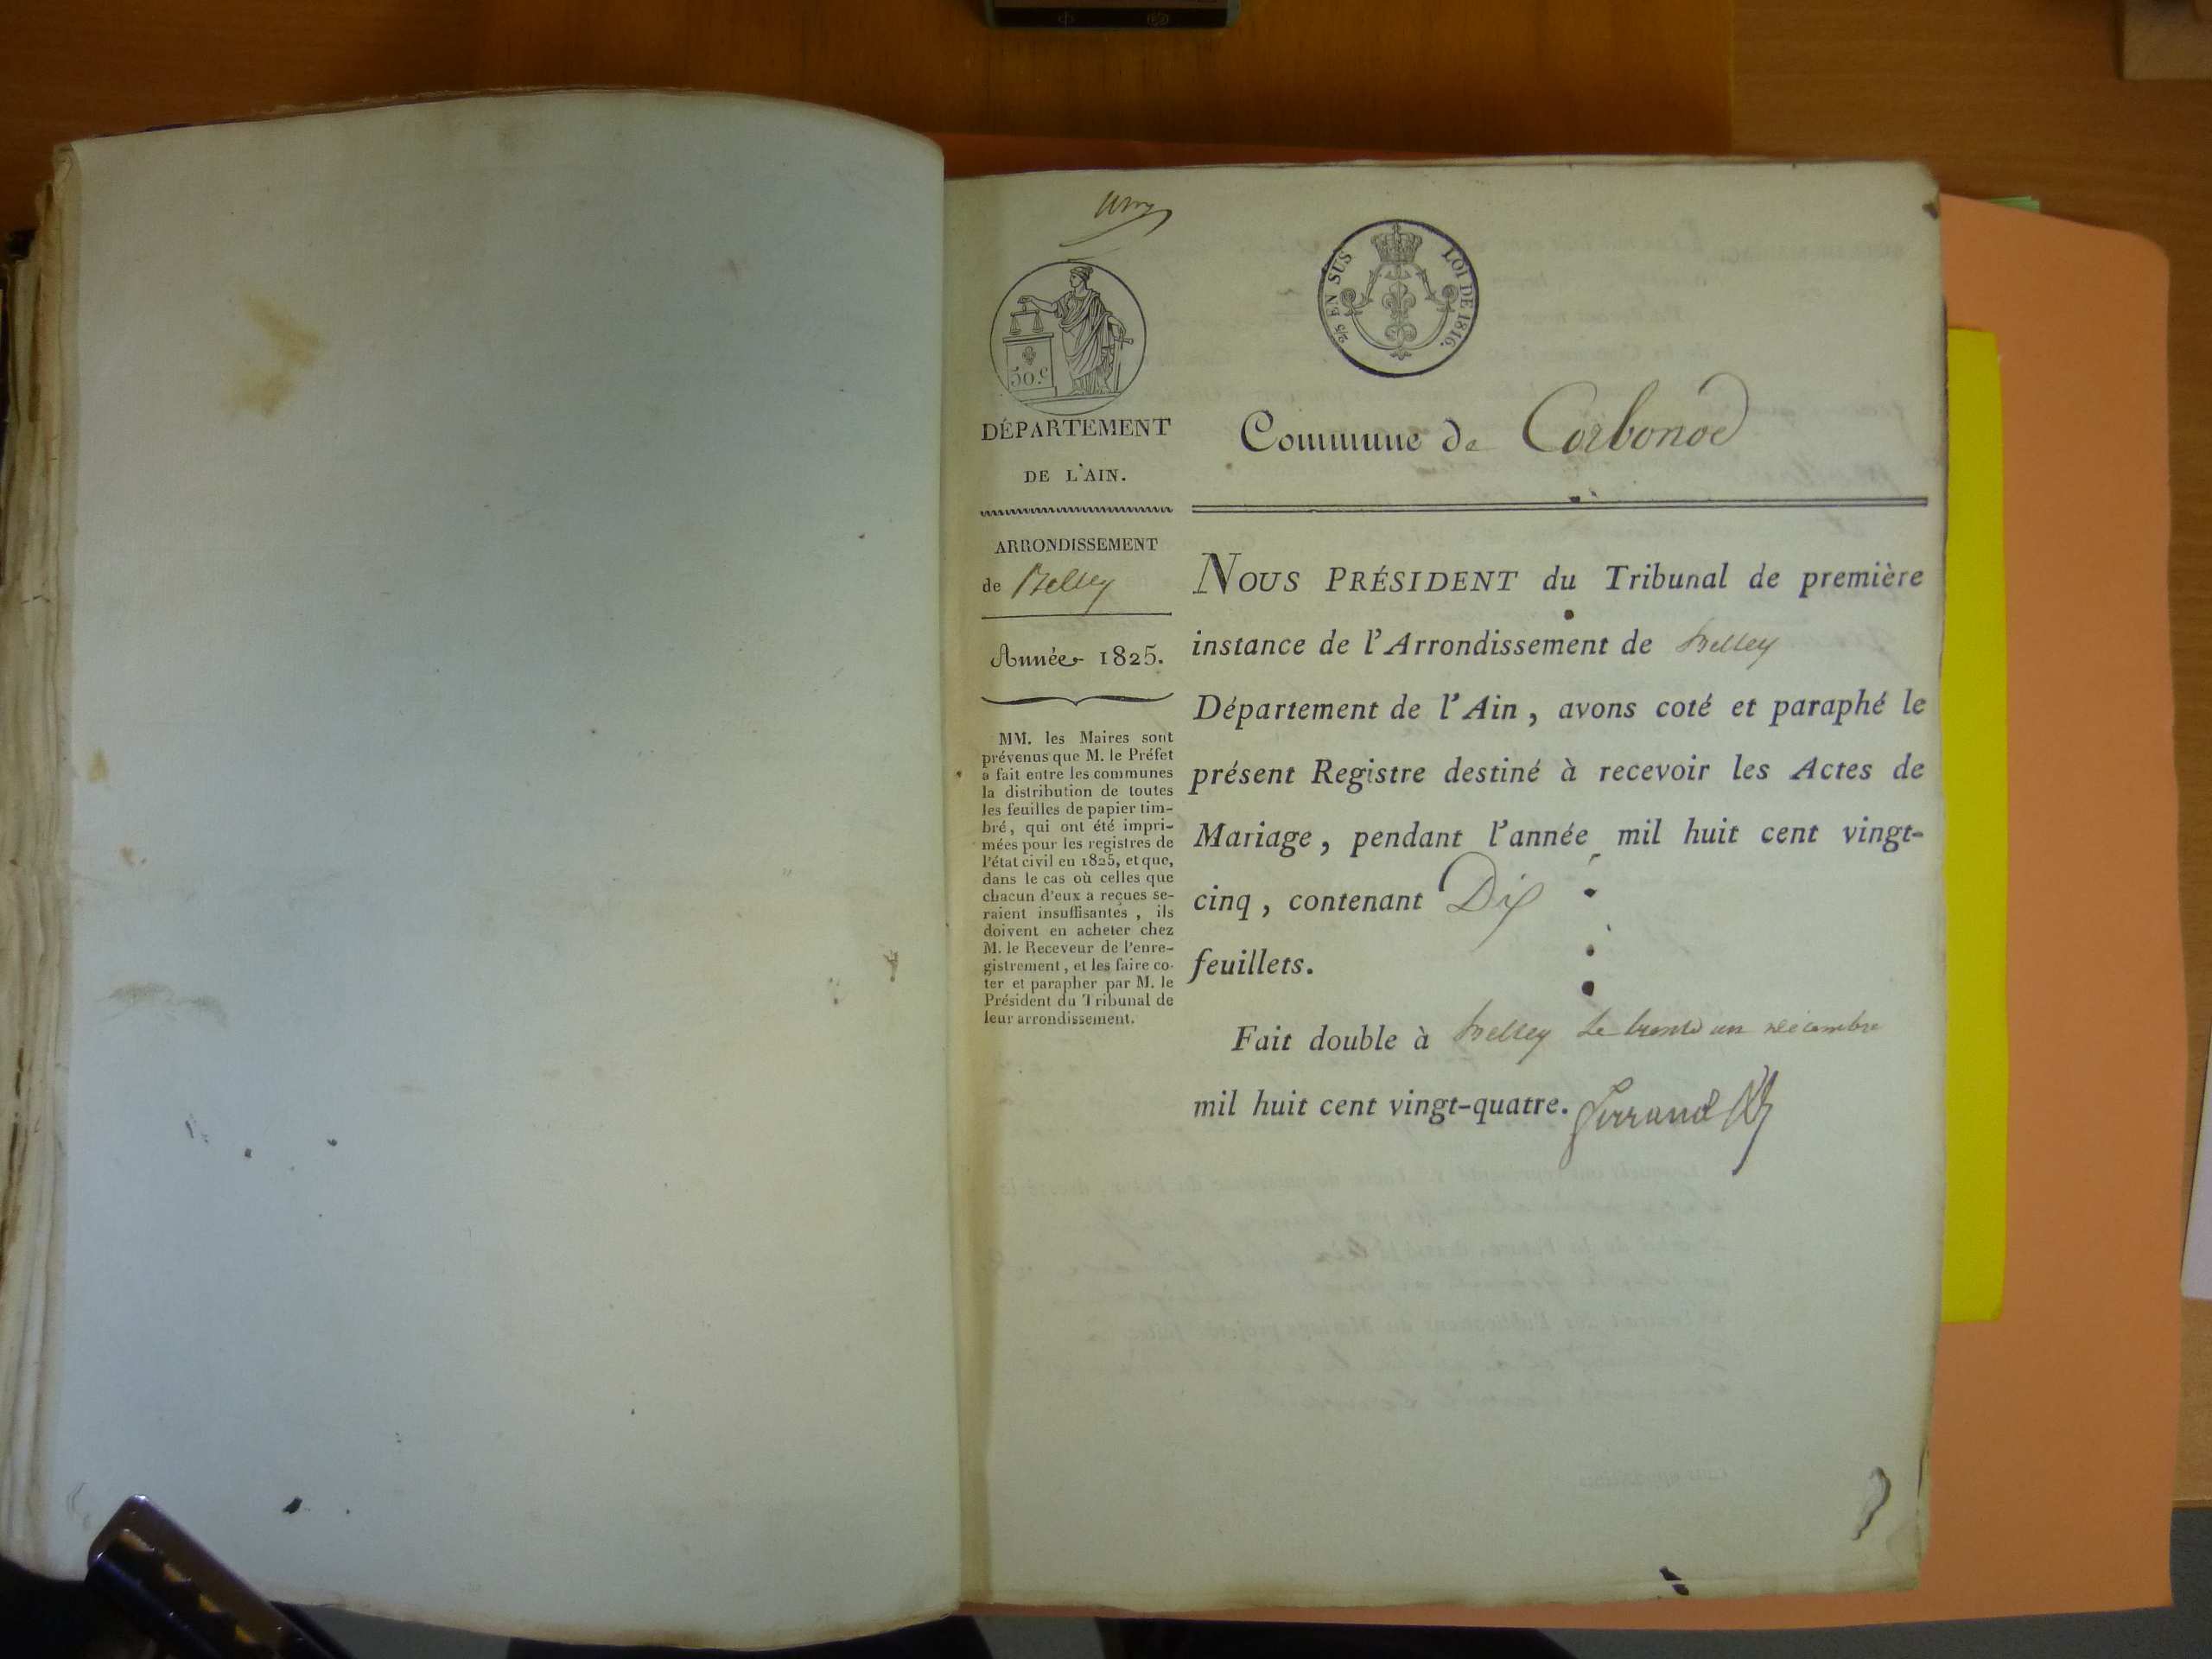 2/5 EN SUS LOI DE 1816.
50.c
DÉPARTEMENT
DE L'AIN.
Commune de Corbonod
ARRONDISSEMENT
de Belley
Année 1825.
MM. les Maires sont
prévenus que M. le Préfet
a fait entre les communes
la distribution de toutes
les feuilles de papier tim-
bré, qui ont été impri-
mées pour les registres de
l'état civil en 1825, et que,
dans le cas où celles que
chacun d'eux a reçues se-
raient insuffisantes, ils
doivent en acheter chez
M. le Receveur de l'enre-
gistrement, et les faire co-
ter et parapher par M. le
Président du Tribunal de
leur arrondissement.
NOUS PRÉSIDENT du Tribunal de première
instance de l'Arrondissement de Belley
Département de l'Ain, avons coté et paraphé le
présent Registre destiné à recevoir les Actes de
Mariage, pendant l'année mil huit cent vingt-
cinq, contenant Dix
feuillets.
Fait double à Belley le trente un décembre
mil huit cent vingt-quatre.